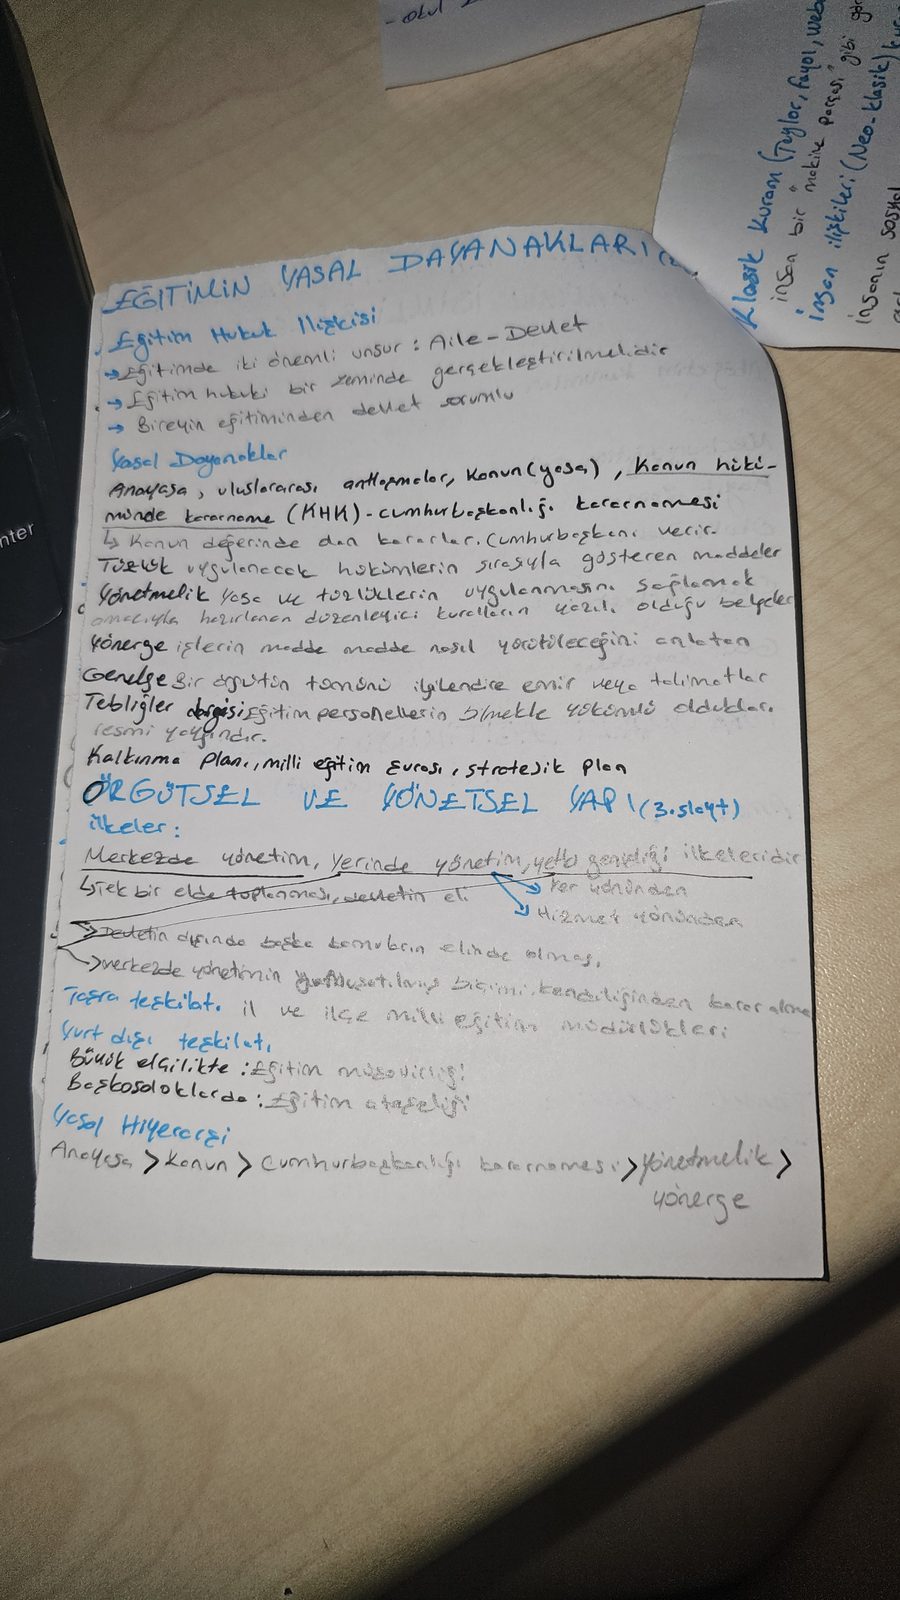 EĞİTİMİN YASAL DAYANAKLARI
Eğitim Hukuk İlişkisi
→ Eğitimde iki önemli unsur : Aile-Devlet
→ Eğitim hukuki bir zeminde gerçekleştirilmelidir
→ Bireyin eğitiminden devlet sorumlu
Yasal Dayanaklar
Anayasa, uluslararası antlaşmalar, Kanun (yasa), Kanun hük-
münde kararname (KHK)-cumhurbaşkanlığı kararnamesi
↳ Kanun değerinde olan kararlar. Cumhurbaşkanı verir.
Tüzük uygulanacak hükümlerin sırasıyla gösteren maddeler
Yönetmelik yasa ve tüzüklerin uygulanmasını sağlamak
amacıyla hazırlanan düzenleyici kuralların yazılı olduğu belgeler
Yönerge işlerin madde madde nasıl yürütüleceğini anlatan
Genelge Bir örgütün tümünü ilgilendire emir veya talimatlar
Tebliğler dergisi Eğitim personellerin bilmekle yükümlü oldukları
resmi yayındır.
Kalkınma Planı, milli eğitim şurası, stratejik plan
ÖRGÜTSEL VE YÖNETSEL YAPI (3.slayt)
ilkeler:
Merkezde yönetim, yerinde yönetim, yetki genişliği ilkeleridir
↳ Tek bir elde toplanması, devletin eli
→ Yer yönünden
→ Hizmet yönünden
→ Devletin dışında başka kamuların elinde olması.
→ merkezde yönetimin yumuşatılmış biçimi, kendiliğinden karar alma
Taşra teşkilatı il ve ilçe milli eğitim müdürlükleri
Yurt dışı teşkilatı
Büyük elçilikte : Eğitim müşavirliği
Başkosoloklarda : Eğitim ataşeliği
Yasal Hiyerarşi
Anayasa > Kanun > Cumhurbaşkanlığı kararnamesi > Yönetmelik >
yönerge
- okul
Klasik Kuram (Taylor, Fayol, Web
insan bir "makine parçası" gibi gör
insan ilişkileri (Neo-klasik) kur
insanın sosyal
nter